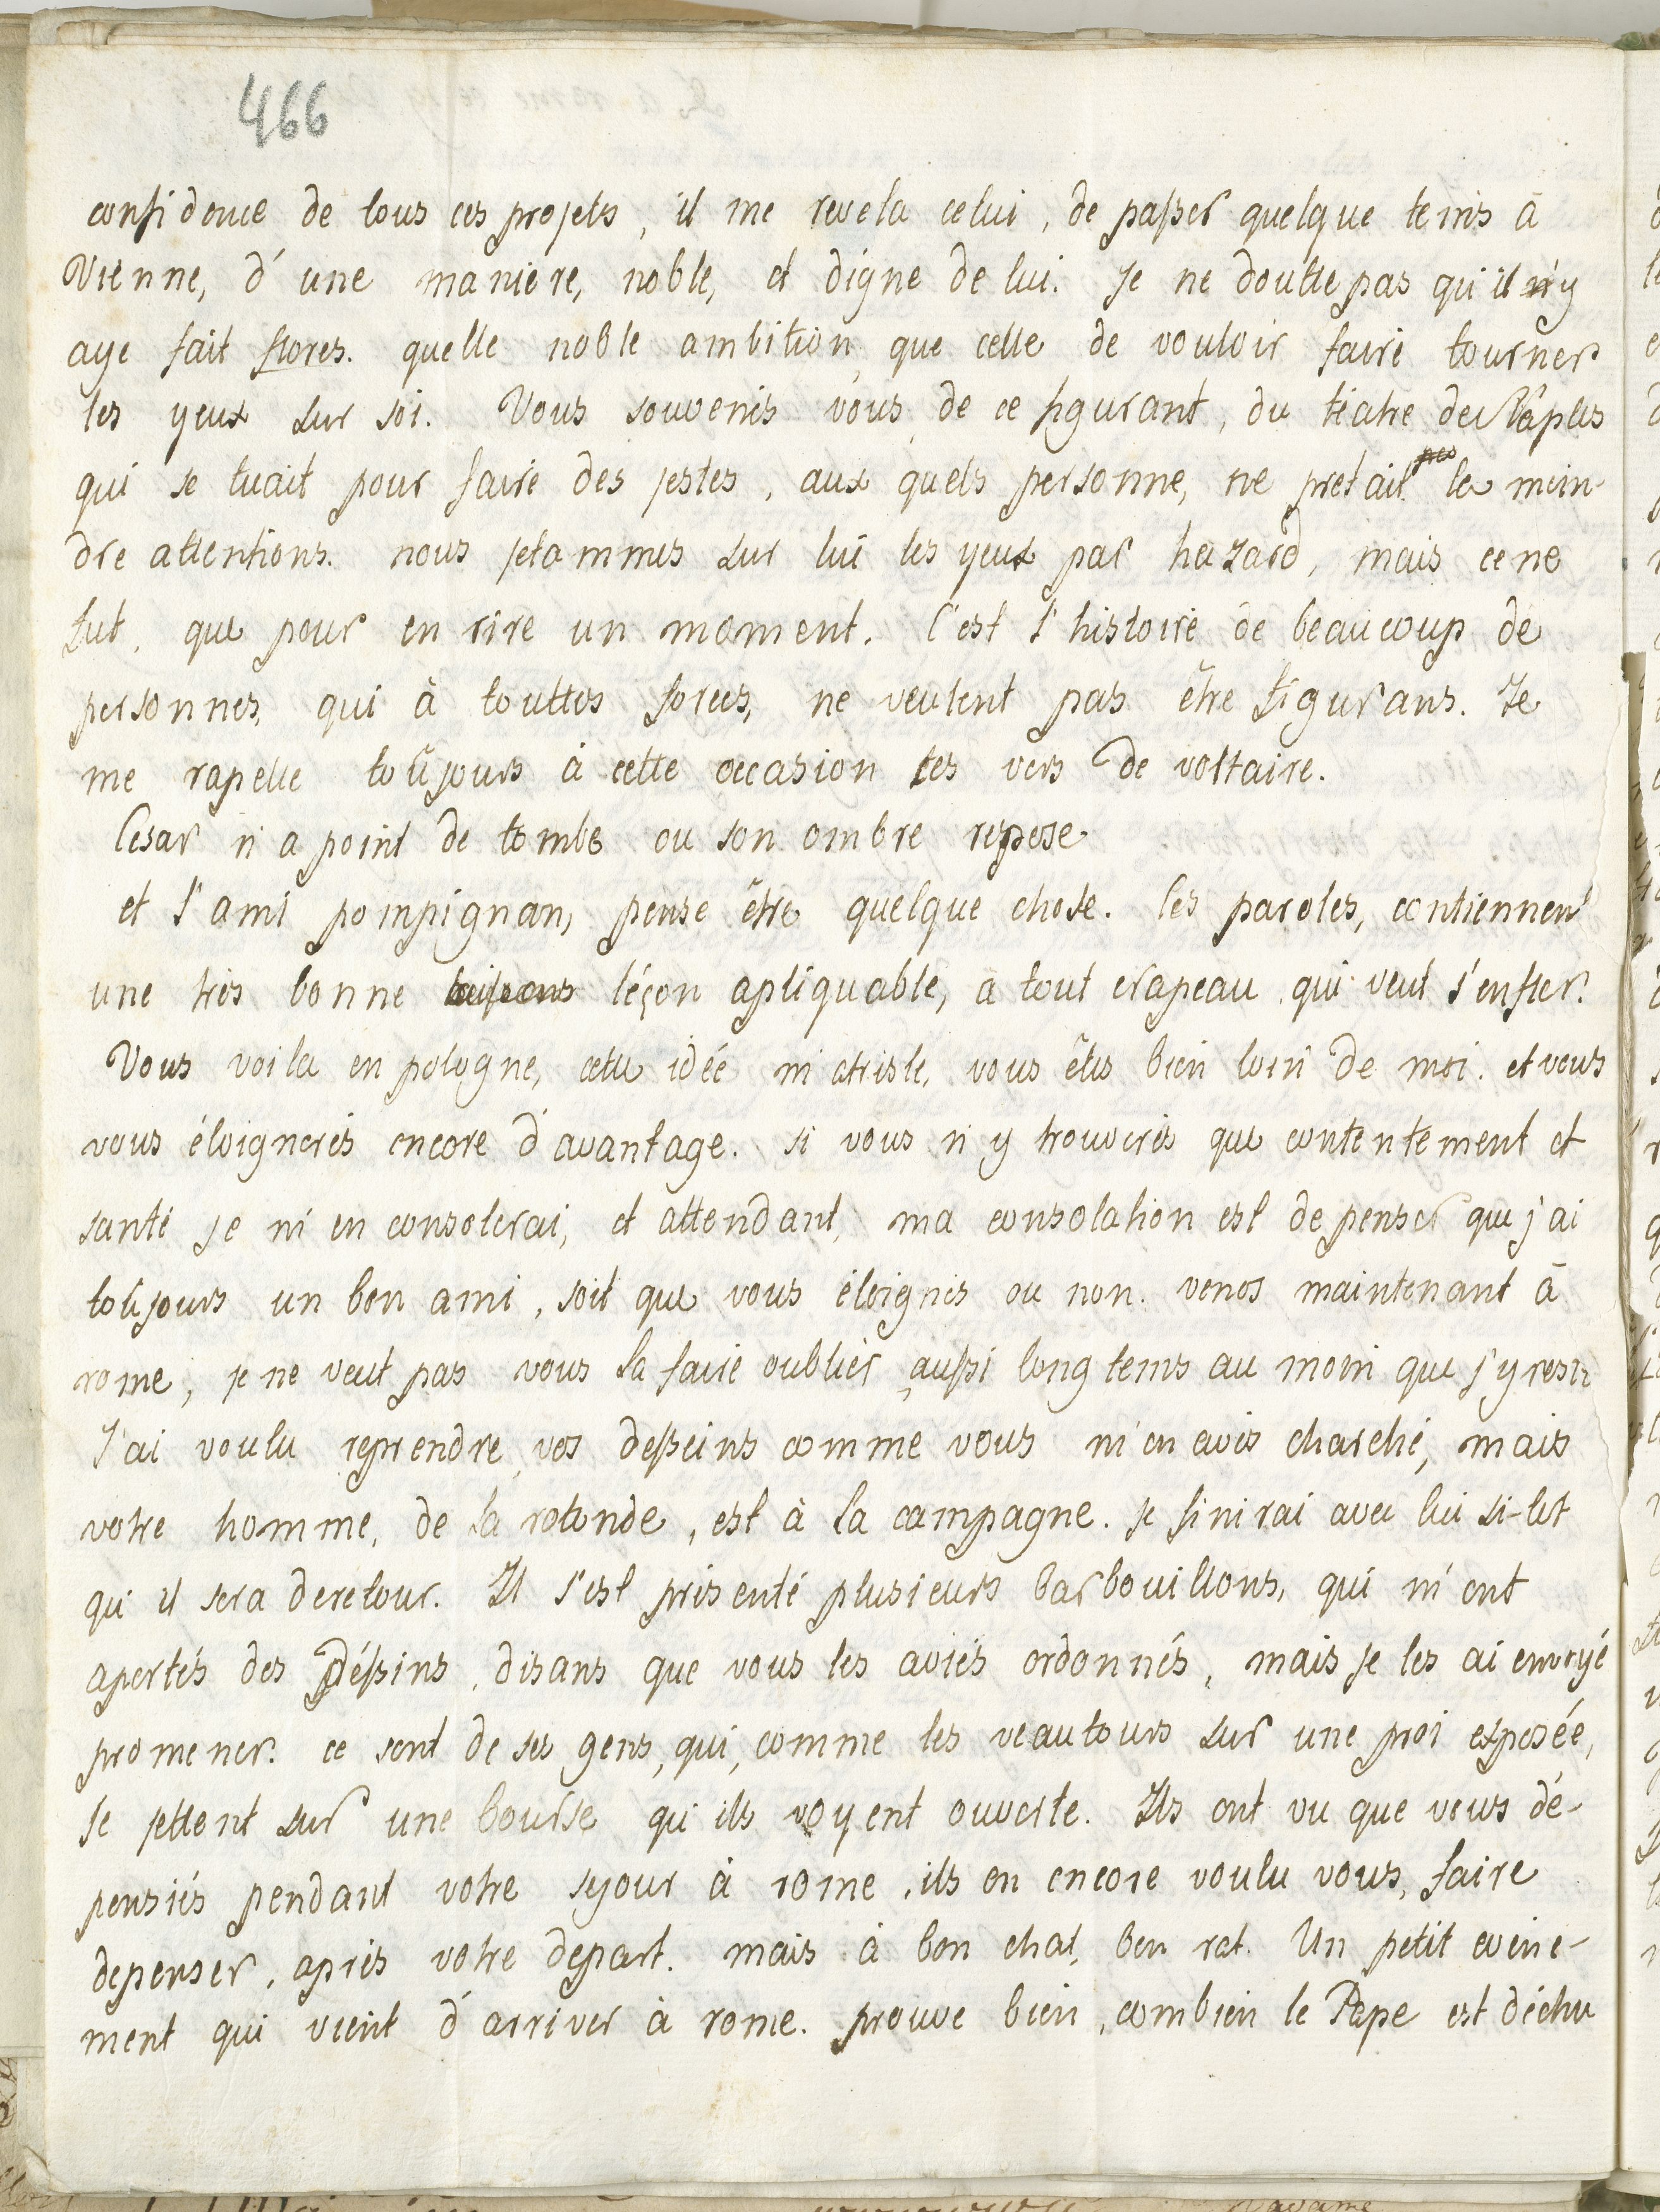 466
confidence de tous ces projets, il me revela celui, de paßer quelque tems à
Vienne, d'une maniere, noble, et digne de lui. Je ne doutte pas qu'il n'y
aye fait flores. quelle noble ambition, que celle de vouloir faire tourner
les yeux sur soi. Vous souvenés vous, de ce figurant, du teatre de Naples
qui se tuait pour faire des jestes, aux quels personne, ne pretait pas la moin-
dre attentions. nous jetammes sur lui les yeux par hazard, mais ce ne
fut, que pour en rire un moment. C'est l'histoire de beaucoup de
personnes, qui à touttes forces, ne veulent pas être figurans. Je
me rapelle toûjours à cette occasion ces vers de voltaire.
Cesar n'a point de tombe ou son ombre repose
et l'ami pompignan, pense être quelque chose. Ces paroles, contiennent
une très bonne léçon apliquable, a tout crapeau qui veut s'enfler.
Vous voila en pologne, cette idée m'atriste, vous êtes bien loin de moi. et vous
vous éloignerés encore d'avantage. si vous n'y trouverés que contentement et
santé je m'en consolerai, et attendant, ma consolation est de penser que j'ai
toûjours un bon ami, soit que vous éloignés ou non. venos maintenant à
rome, je ne veut pas vous la faire oublier, außi long tems au moin que j'y reste
J'ai voulu reprendre, vos deßeins comme vous m'en aviés charché, mais
votre homme, de la rotonde, est à la campagne. je finirai avec lui si-tot
qu'il sera deretour. Il s'est présenté plusieurs barbouillons, qui m'ont
aportés des déßins, disans que vous les aviés ordonnés, mais je les ai envoyé
promener. ce sont de ses gens, qui, comme les veautours sur une proi exposée,
se jettent sur une bourse qu'ils voyent ouverte. Ils ont vu que vous dé-
pensiés pendant votre sejour à rome, ils on encore voulu vous, faire
depenser, après votre depart. mais à bon chat, bon rat. Un petit evene-
ment qui vient d'arriver à rome. prouve bien, combien le Pape est déchu